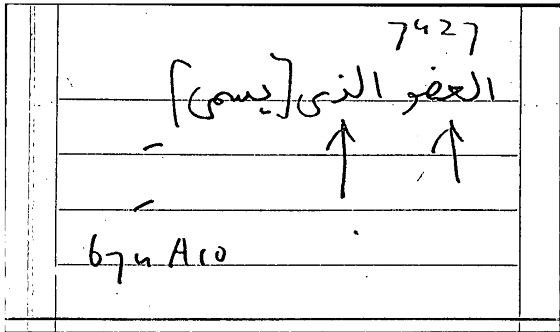 7427
العضو الذى [يسمى]
67u A10